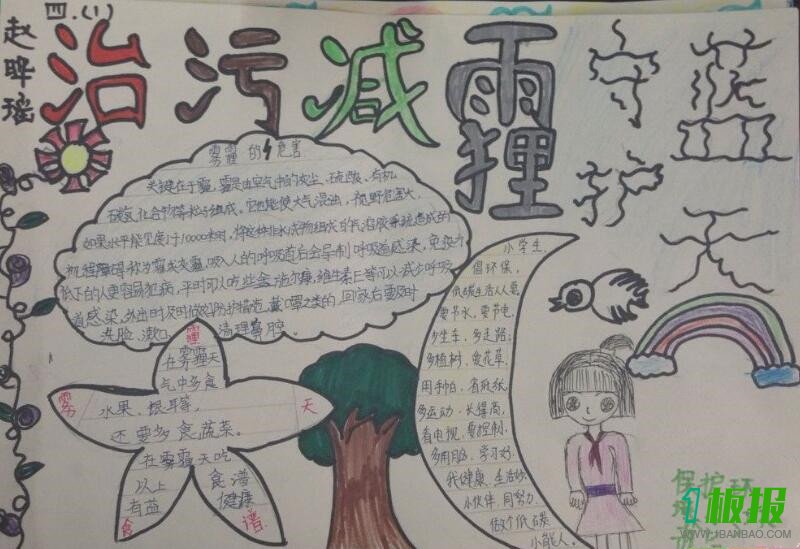 四.(1)
赵晔瑶
治污减霾
守护蓝天
雾霾的危害
关键在于霾,霾是由空气中的灰尘、硫酸、有机
碳氢化合物等粒子组成。它也能使大气混浊,视野
如果水平能见度小于10000米时,将这种非水成物组成的气溶胶系统造成的
视程障碍称为霾或灰霾,吸入人的呼吸道后会导制呼吸道感染,免疫力
低下的人更容易犯病,平时可人吃些金
维生素E等可以减少呼吸
道感染,外出时及时做好防护措施,戴口罩之类的,回家后要及时
洗脸、漱口、清理鼻腔。
霾
雾
天
食
谱
在雾霾天
气中多食
水果、根耳等,
还要多食蔬菜。
在雾霾天吃
以上食谱
有益健康
小学生,
倡环保,
低碳生活人人要,
要节水,要节电,
少生车,多走路;
多植树,爱花草,
用手帕,省纸纸,
多运动,长得高,
看电视,要控制,
多用脑,学习好,
我健康,生活妙,
小伙伴,同努力,
做个低碳
小能人。
保护环
1板报
WWW.1BANBAO.COM